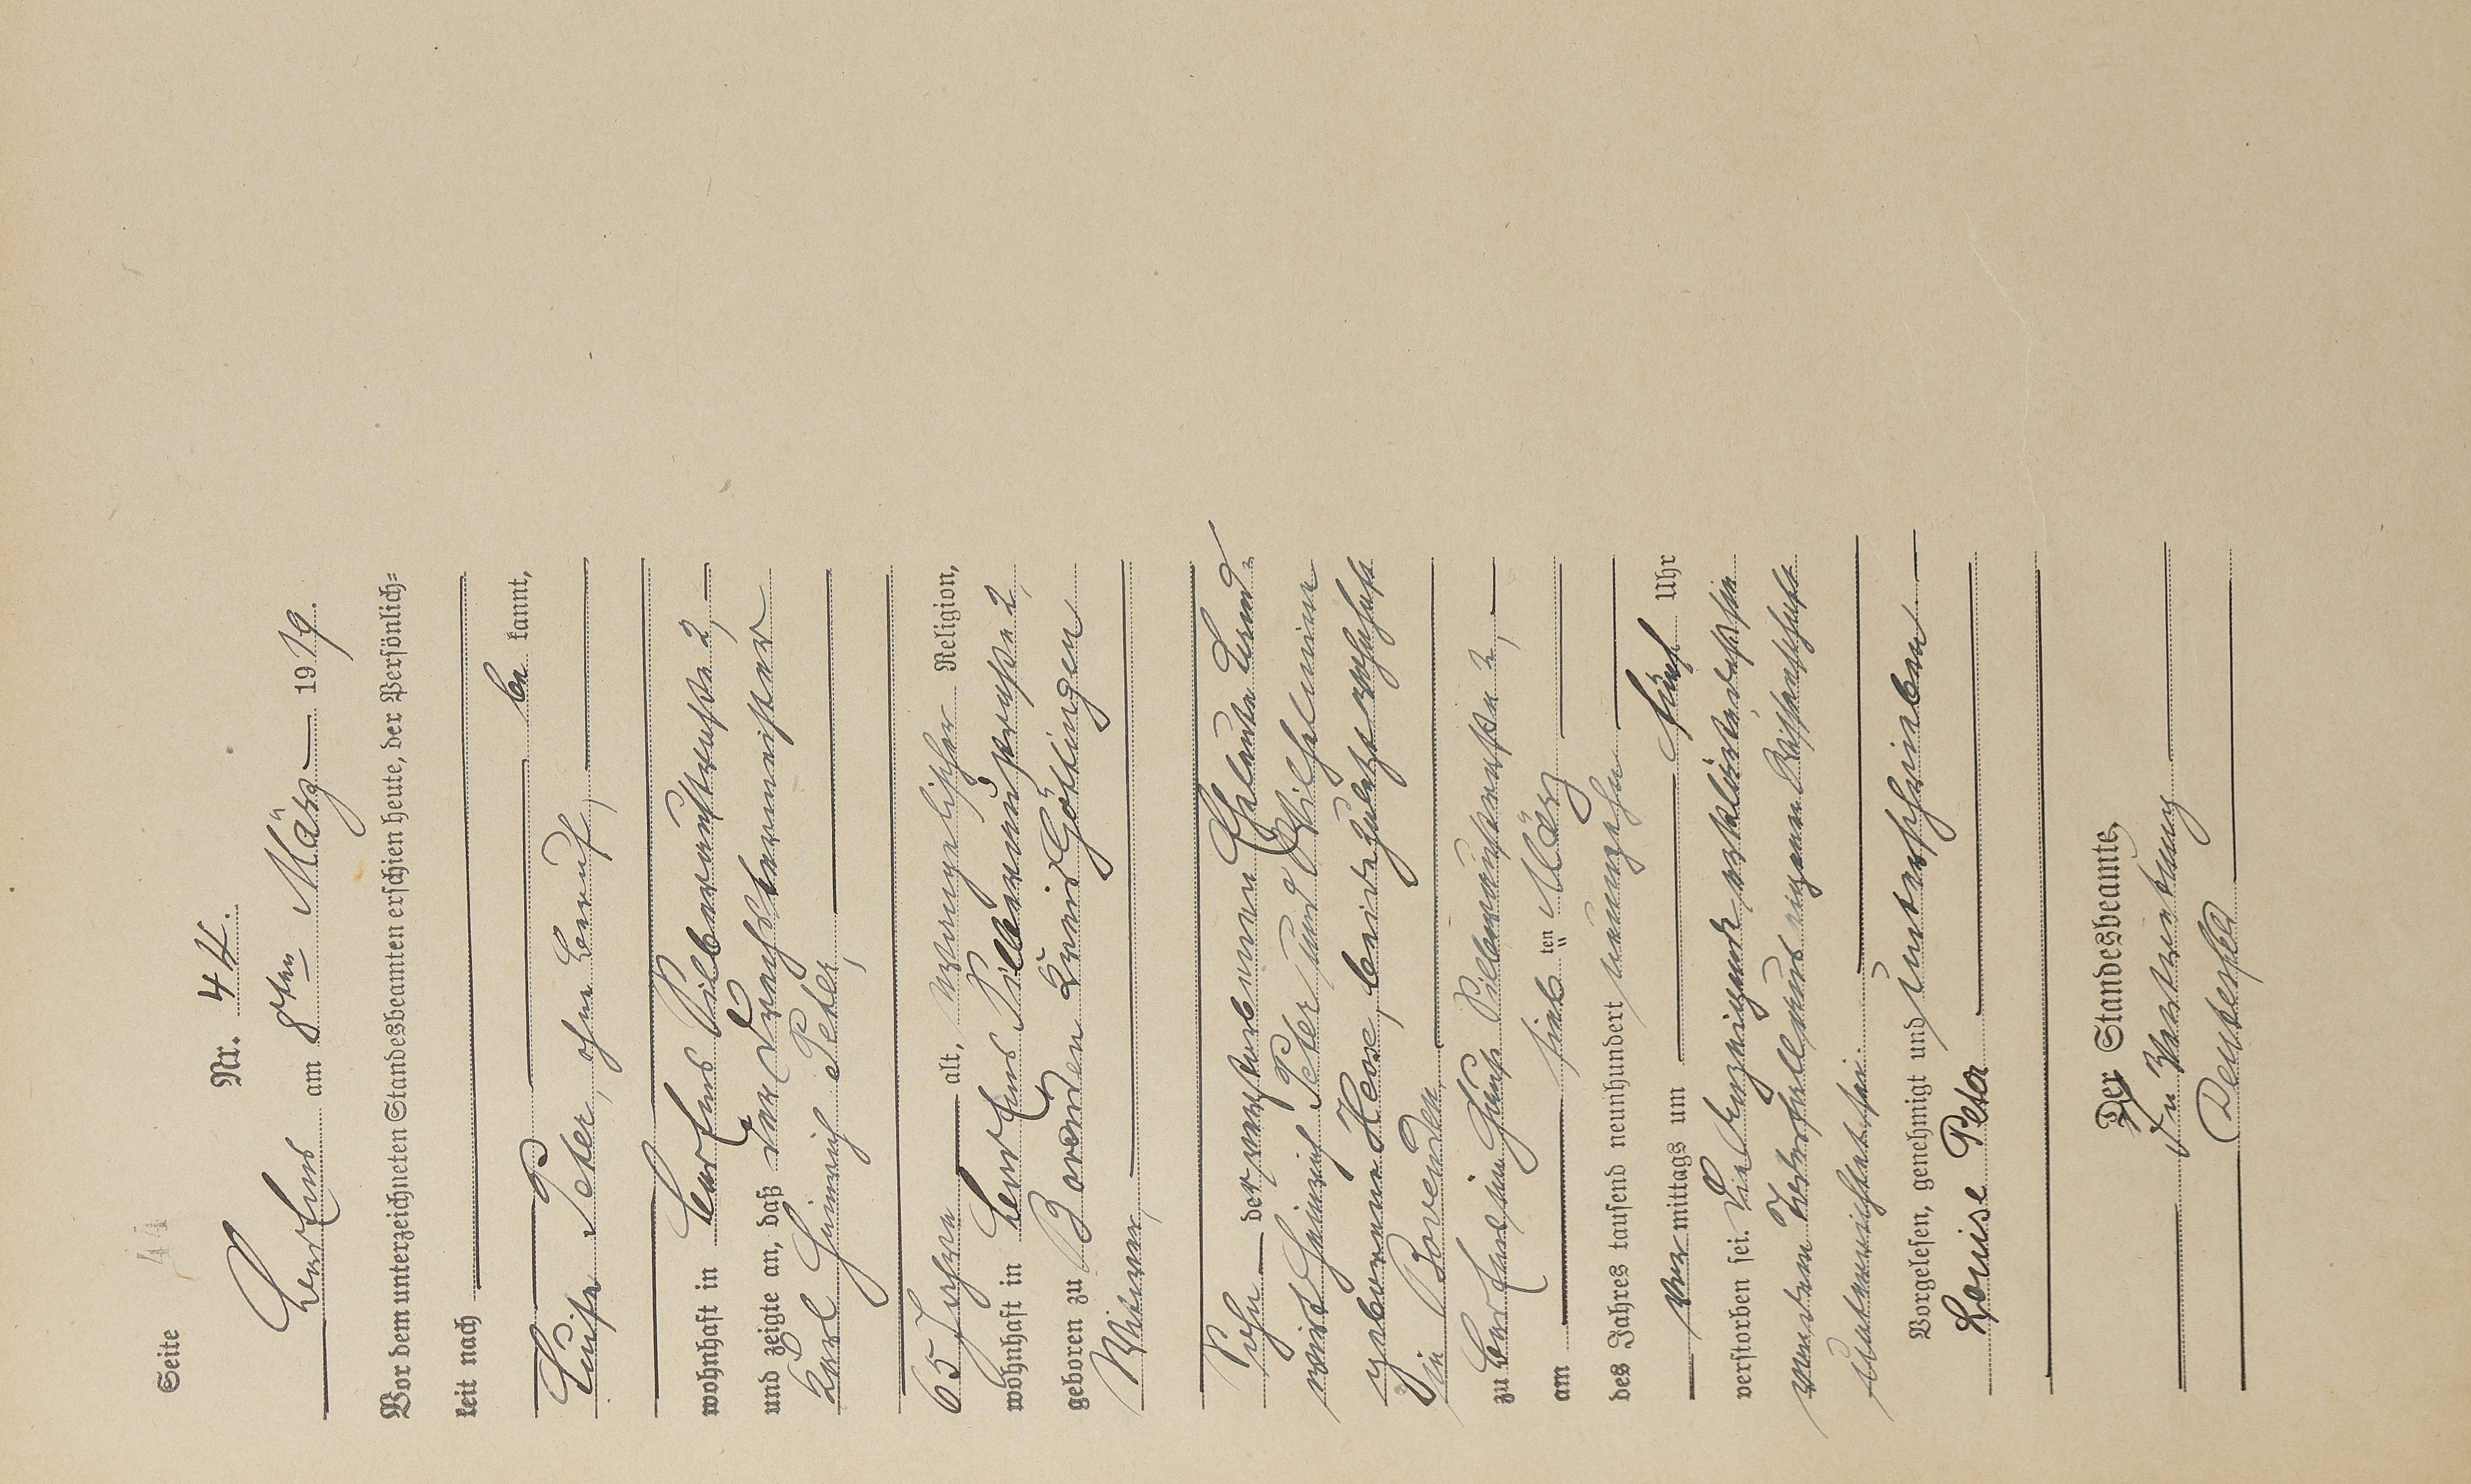 Seite 44
Nr. 44.
am 8ten März 1919.
Vor dem unterzeichneten Standesbeamten erschien heute, der Persönlich-
keit nach
be kannt,
Luise Peter, ohne Beruf,
wohnhaft in Silbernaustraße 2,
und zeigte an, daß der Drechslermeister
Karl Heinrich Peter,
65 Jahre alt, evangelischer Religion,
wohnhaft in Silbernaustraße 2
geboren zu Bovenden Kreis Göttingen
Witwer,
Sohn der verstorbenen Eheleute
Heinrich Peter und Wilhelmine
geborene beide zuletzt wohnhaft
in Bovenden
zu im Hause Silbernaustraße 2,
am sieb ten März
des Jahres tausend neunhundert neunzehn
vor mittags um fünf Uhr
verstorben sei. Die Anzeigende erklärte, daß sie
von dem Todesfall aus eigener Wissenschaft
unterrichtet sei.
Vorgelesen, genehmigt und unterschrieben
Louise Peter
Der Standesbeamte,
In Vertretung